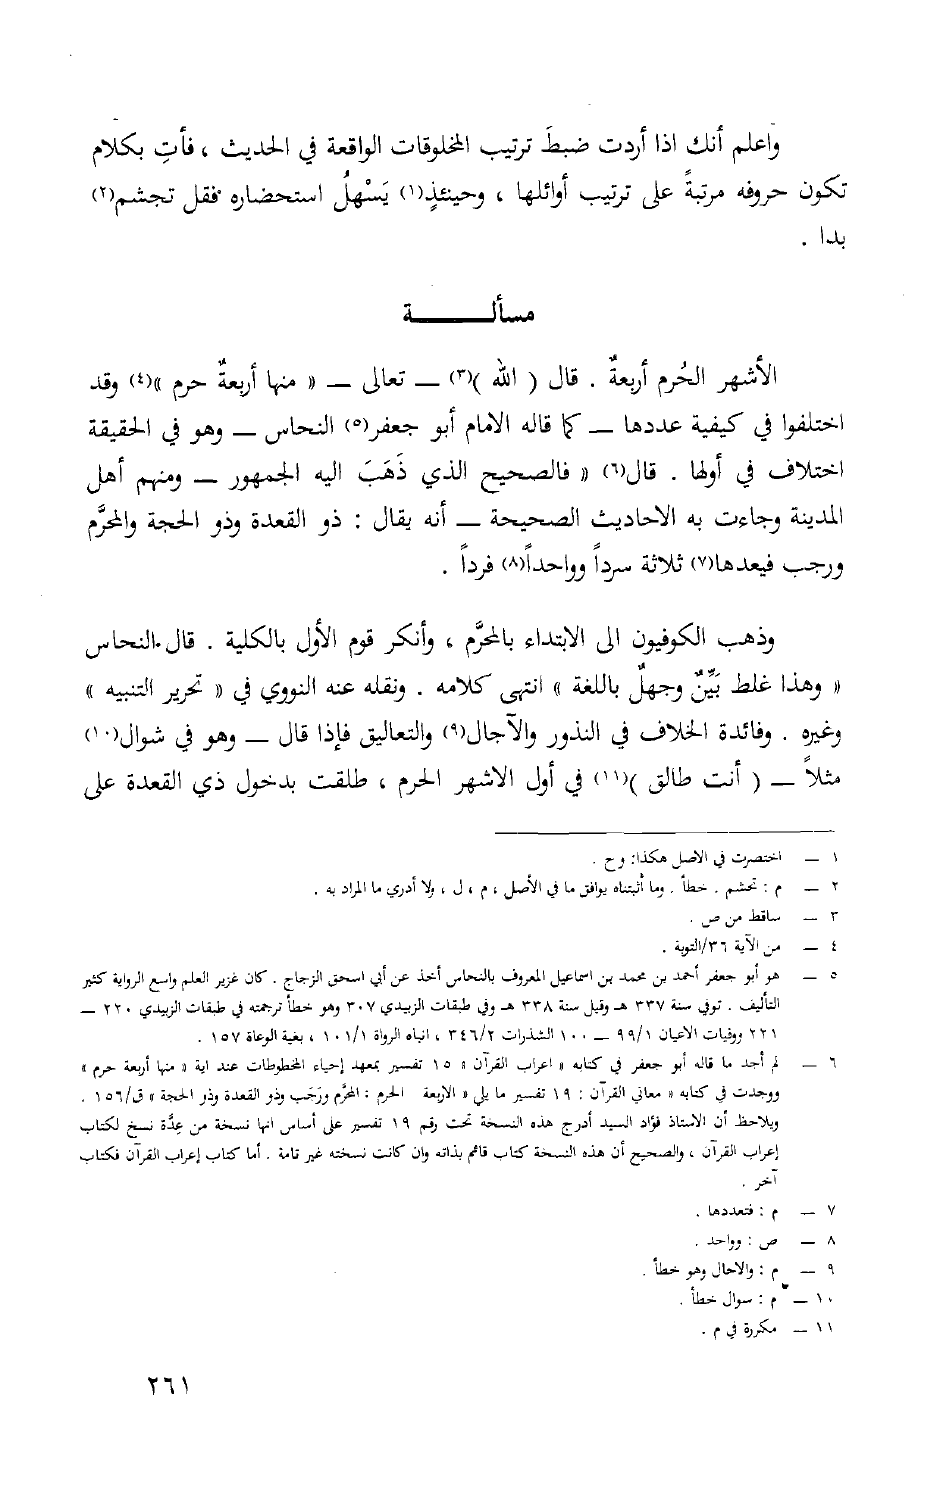 واعلم أنك اذا أردت ضبطَ ترتيب المخلوقات الواقعة في الحديث ، فأتِ بكلام
تكون حروفه مرتبةً على ترتيب أوائلها ، وحينئذٍ(١) يَسْهلُ استحضاره فقل تجشم(٢)
بدا .
مسألـــــــة
الأشهر الحُرم أربعةٌ . قال ( الله )(٣) — تعالى — « منها أربعةٌ حرم »(٤) وقد
اختلفوا في كيفية عددها — كما قاله الامام أبو جعفر(٥) النحاس — وهو في الحقيقة
اختلاف في أولها . قال(٦) « فالصحيح الذي ذَهَبَ اليه الجمهور — ومنهم أهل
المدينة وجاءت به الاحاديث الصحيحة — أنه يقال : ذو القعدة وذو الحجة والمحرَّم
ورجب فيعدها(٧) ثلاثة سرداً وواحداً(٨) فرداً .
وذهب الكوفيون الى الابتداء بالمحرَّم ، وأنكر قوم الأول بالكلية . قال النحاس
« وهذا غلط بَيِّنٌ وجهلٌ باللغة » انتهى كلامه . ونقله عنه النووي في « تحرير التنبيه »
وغيره . وفائدة الخلاف في النذور والآجال(٩) والتعاليق فإذا قال — وهو في شوال(١٠)
مثلاً — ( أنت طالق )(١١) في أول الاشهر الحرم ، طلقت بدخول ذي القعدة على
١ — اختصرت في الاصل هكذا: وح .
٢ — م : تحشم . خطأ . وما أثبتناه يوافق ما في الأصل ، م ، ل ، ولا أدري ما المراد به .
٣ — ساقط من ص .
٤ — من الآية ٣٦/التوبة .
٥ — هو أبو جعفر أحمد بن محمد بن اسماعيل المعروف بالنحاس أخذ عن أبي اسحق الزجاج . كان غزير العلم واسع الرواية كثير
التأليف . توفي سنة ٣٣٧ هـ وقيل سنة ٣٣٨ هـ وفي طبقات الزبيدي ٣٠٧ وهو خطأ ترجمته في طبقات الزبيدي ٢٢٠ —
٢٢١ ووفيات الاعيان ٩٩/١ — ١٠٠ الشذرات ٣٤٦/٢ ، انباه الرواة ١٠١/١ ، بغية الوعاة ١٥٧ .
٦ — لم أجد ما قاله أبو جعفر في كتابه « اعراب القرآن » ١٥ تفسير بمعهد إحياء المخطوطات عند اية « منها أربعة حرم »
ووجدت في كتابه « معاني القرآن : ١٩ تفسير ما يلي « الاربعة الحرم : المحرَّم ورَجَب وذو القعدة وذو الحجة » ق/١٥٦ .
ويلاحظ أن الاستاذ فؤاد السيد أدرج هذه النسخة تحت رقم ١٩ تفسير على أساس انها نسخة من عِدَّة نسخ لكتاب
إعراب القرآن ، والصحيح أن هذه النسخة كتاب قائم بذاته وان كانت نسخته غير تامة . أما كتاب إعراب القرآن فكتاب
آخر .
٧ — م : فتعددها .
٨ — ص : وواحد .
٩ — م : والاحال وهو خطأ .
١٠ — م : سوال خطأ .
١١ — مكررة في م .
٢٦١